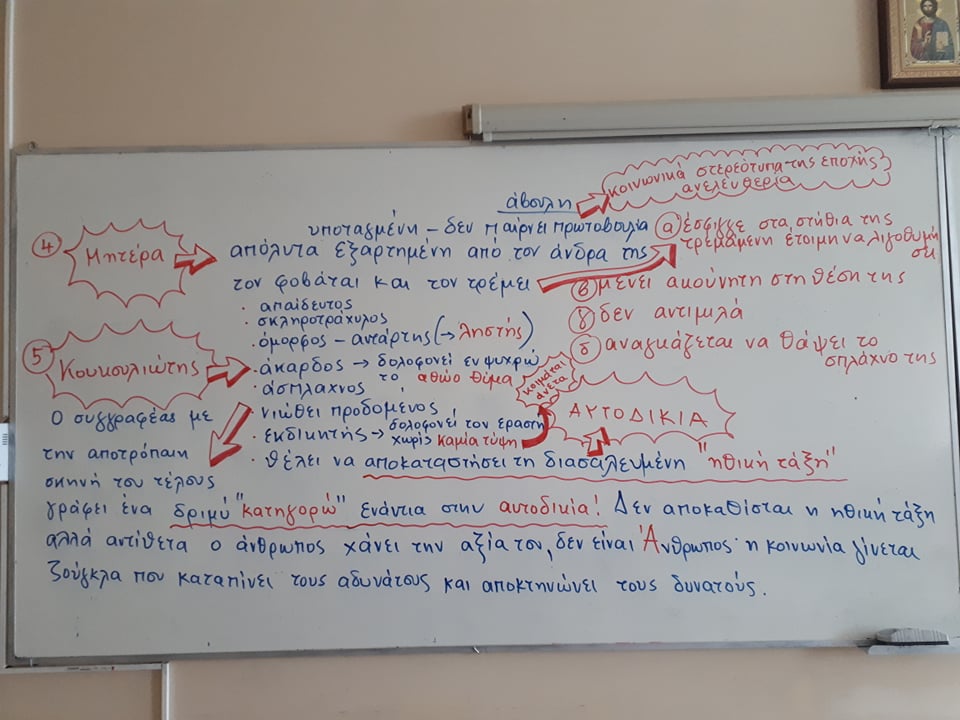 κοινωνικά στερεότυπα της εποχής
ανελευθερία
άβουλη
④ Μητέρα
υποταγμένη – δεν παίρνει πρωτοβουλία
απόλυτα εξαρτημένη από τον άνδρα της
τον φοβάται και τον τρέμει
ⓐ έσφιγγε στα στήθια της
τρεμάμενη έτοιμη να λιγοθυμή
ση
ⓑ μένει ακούνητη στη θέση της
γ δεν αντιμιλά
δ αναγκάζεται να θάψει το
σπλάχνο της
⑤ Κουκουλιώτης
· απαίδευτος
· σκληροτράχυλος
· όμορφος – αντάρτης (→ ληστής)
· άκαρδος → δολοφονεί εν ψυχρώ
το αθώο θύμα
· άσπλαχνος
· νιώθει προδομένος
· εκδικητής → δολοφονεί τον εραστή
χωρίς καμία τύψη
κοιμάται
άνετα
ΑΥΤΟΔΙΚΙΑ
· θέλει να αποκαταστήσει τη διασαλευμένη "ηθική τάξη"
Ο συγγραφέας με
την αποτρόπαιη
σκηνή του τέλους
γράφει ένα δριμύ "κατηγορώ" ενάντια στην αυτοδικία! Δεν αποκαθίσται η ηθική τάξη
αλλά αντίθετα ο άνθρωπος χάνει την αξία του, δεν είναι Άνθρωπος· η κοινωνία γίνεται
ζούγκλα που καταπίνει τους αδυνάτους και αποκτηνώνει τους δυνατούς.